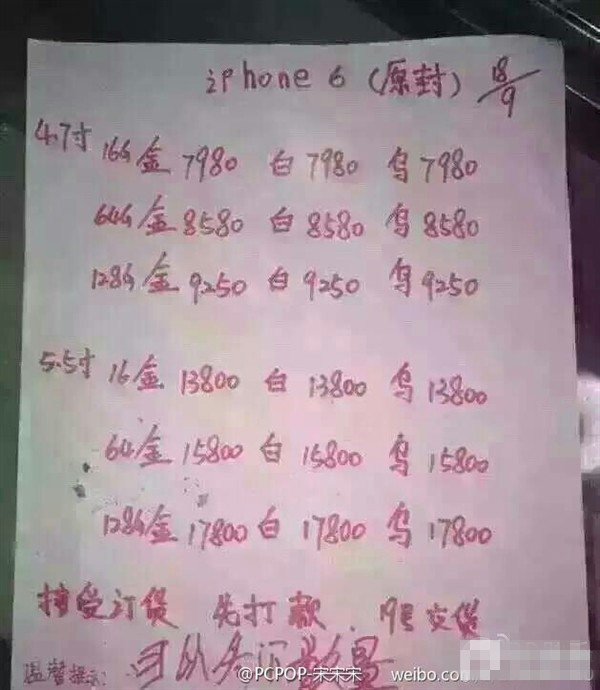 iPhone 6 (原封) 18/9
4.7寸 16G 金 7980 白 7980 乌 7980
64G 金 8580 白 8580 乌 8580
128G 金 9250 白 9250 乌 9250
5.5寸 16 金 13800 白 13800 乌 13800
64 金 15800 白 15800 乌 15800
128G 金 17800 白 17800 乌 17800
接受订货 先打款、19号交货
温馨提示:
@PCPOP-宋宋宋 weibo.com